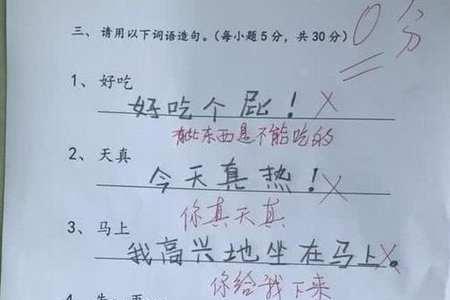 三、请用以下词语造句。(每小题5分,共30分)
0分
1、好吃
好吃个屁!
有些东西是不能吃的
2、天真
今天真热!
你真天真
3、马上
我高兴地坐在马上。
你给我下来